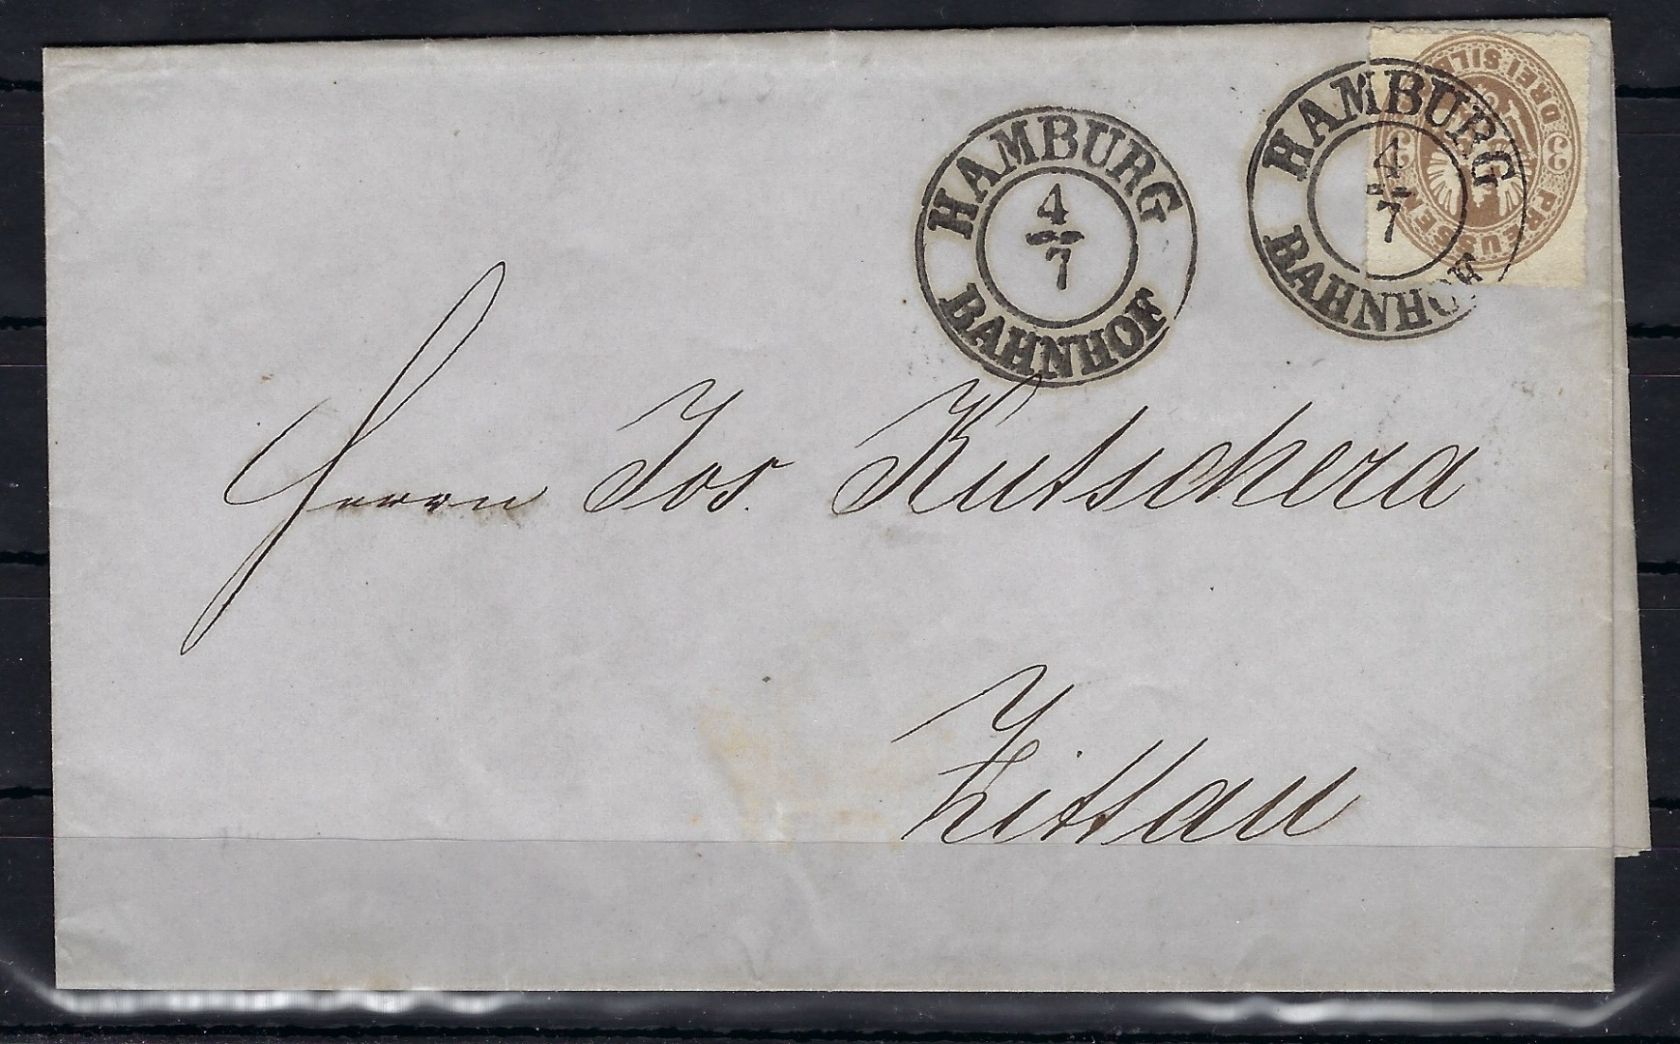 HAMBURG
4
7
BAHNHOF
HAMBURG
4
7
BAHNHOF
PREUSSEN
DREI SILB
3
3
Herrn Jos. Kutschera
Zittau